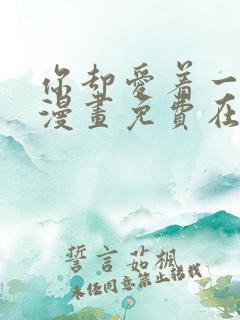 你却愛着一
漫畫免費在
誓言茹楓
未经同意禁止转载